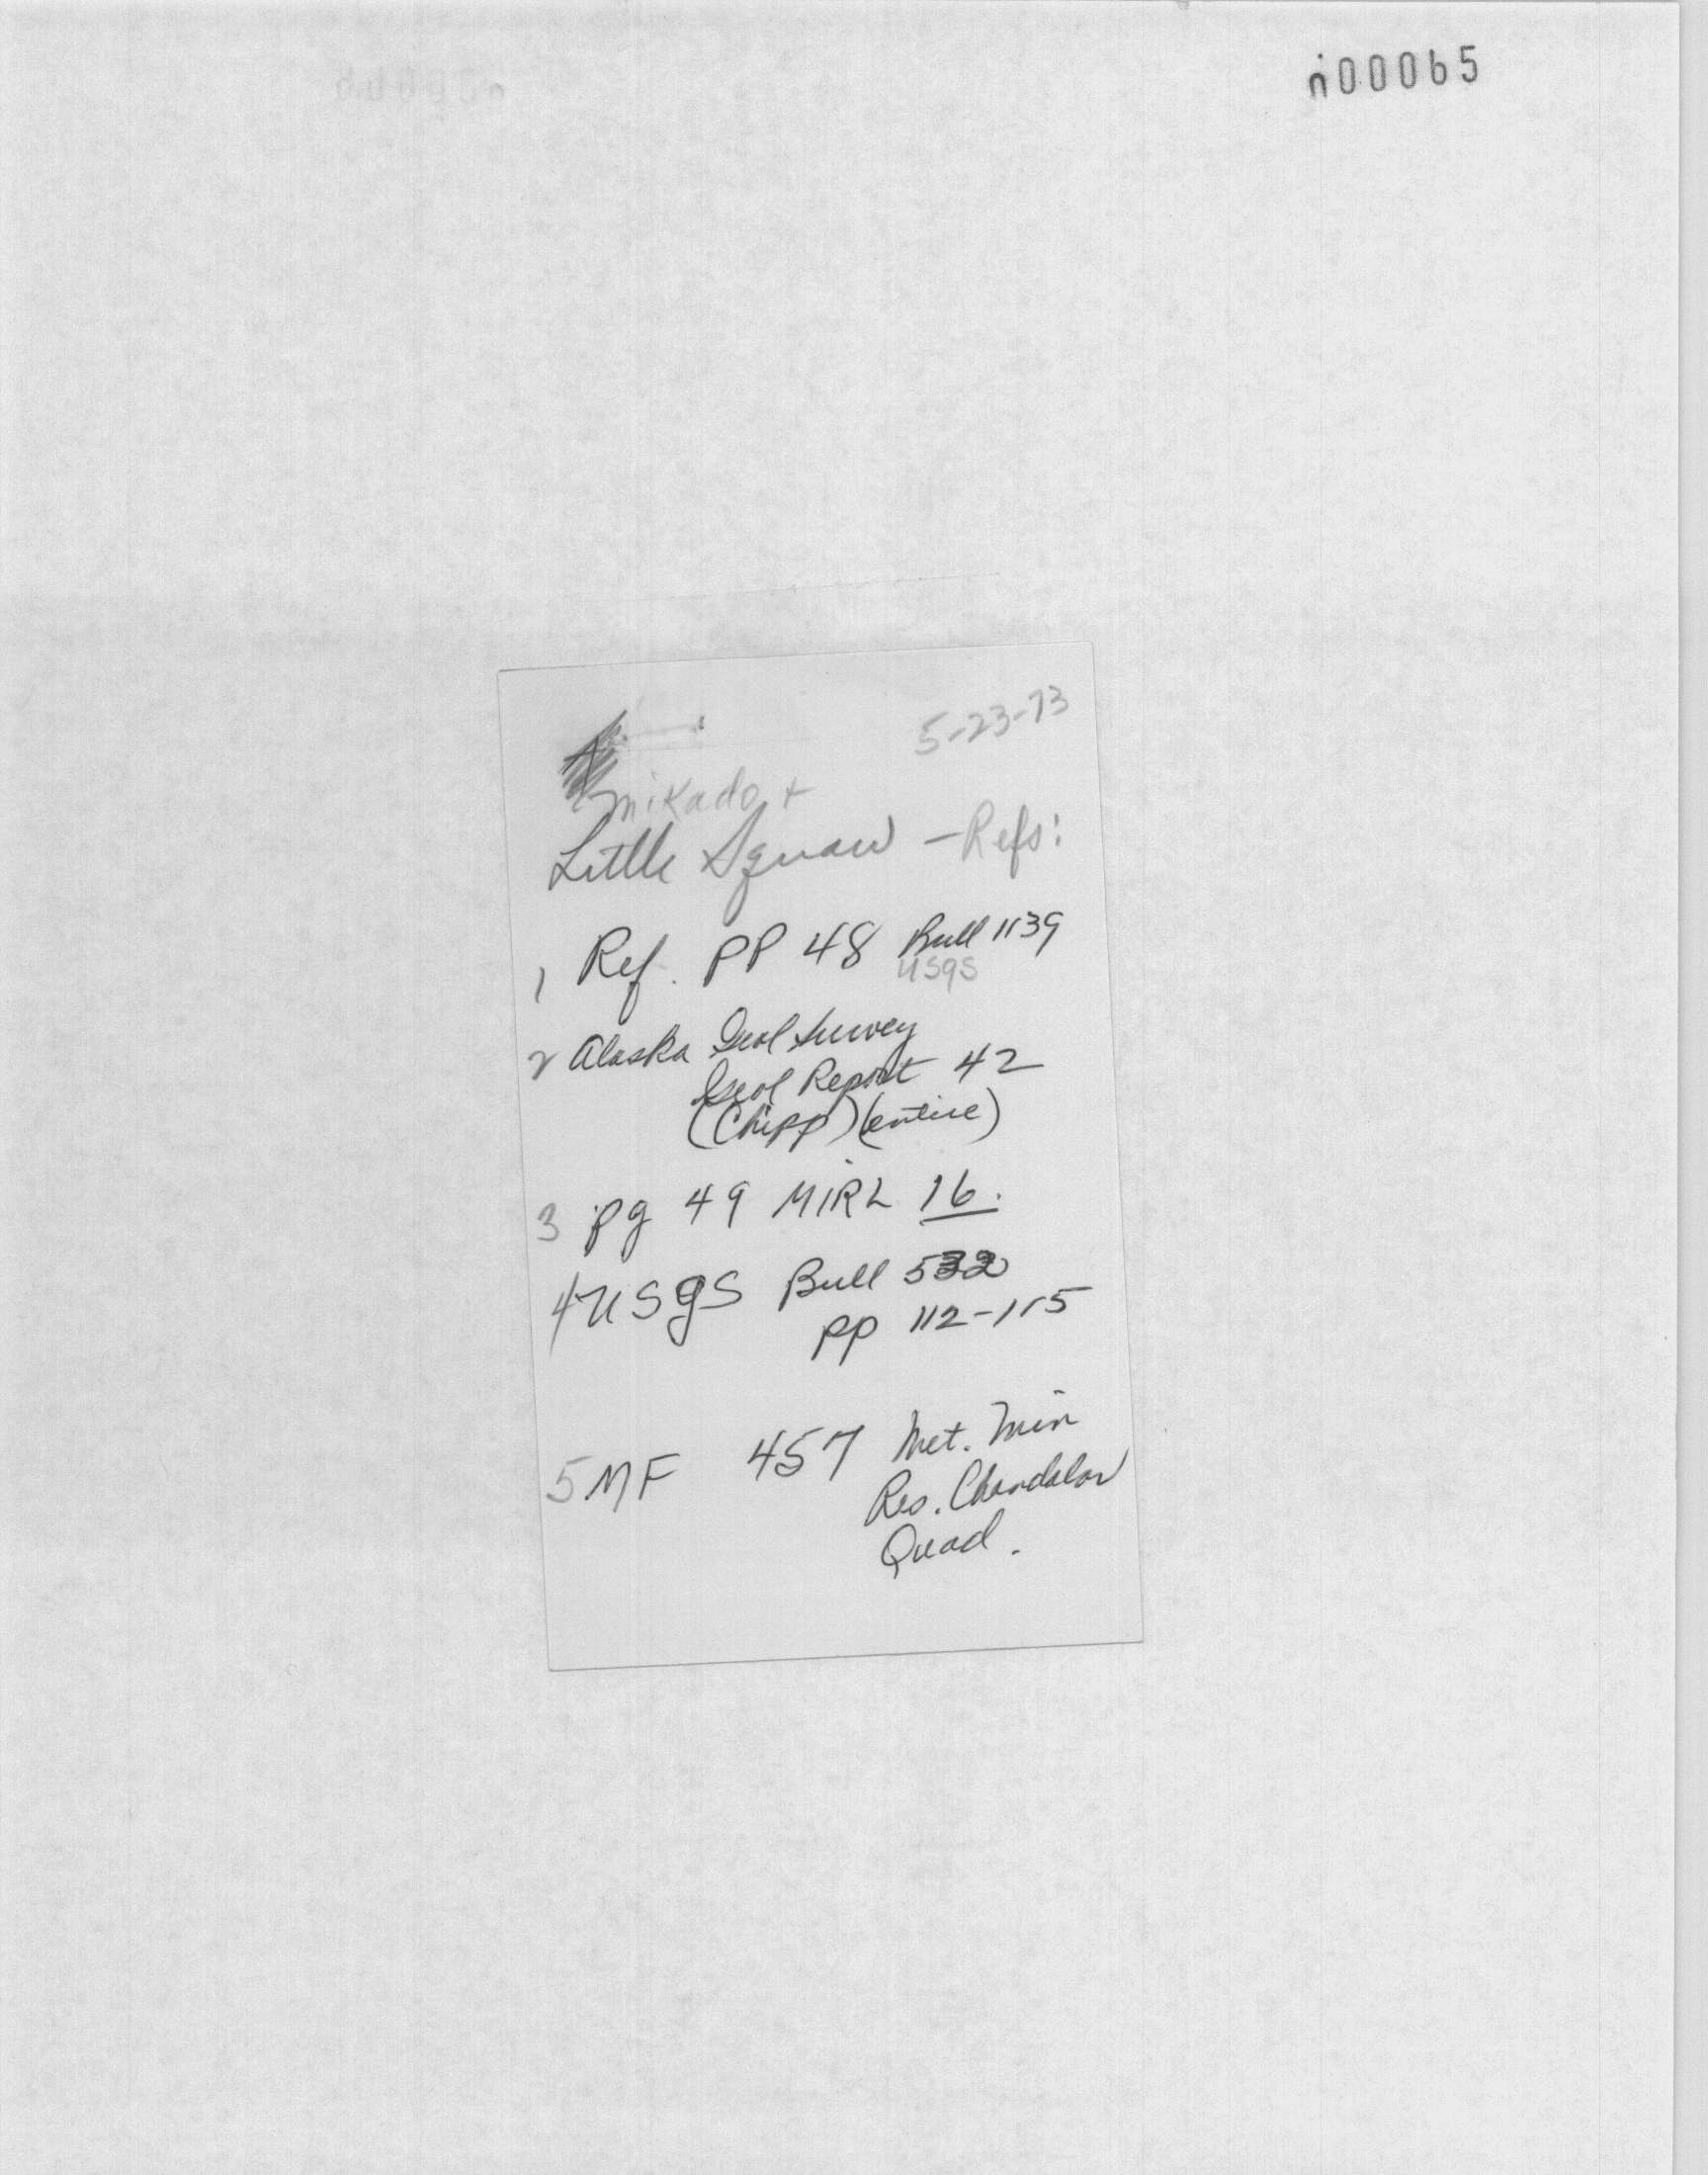 n00065
5-23-73
Mikado +
Little Squaw - Refs:
1 Ref. PP 48 Bull 1139
USGS
2 Alaska Geol Survey
Geol Report 42
(Chipp) (entire)
3 pg 49 MIRL 16.
4 USGS Bull 532
pp 112-115
5 MF 457 Met. Min
Res. Chandalar
Quad.